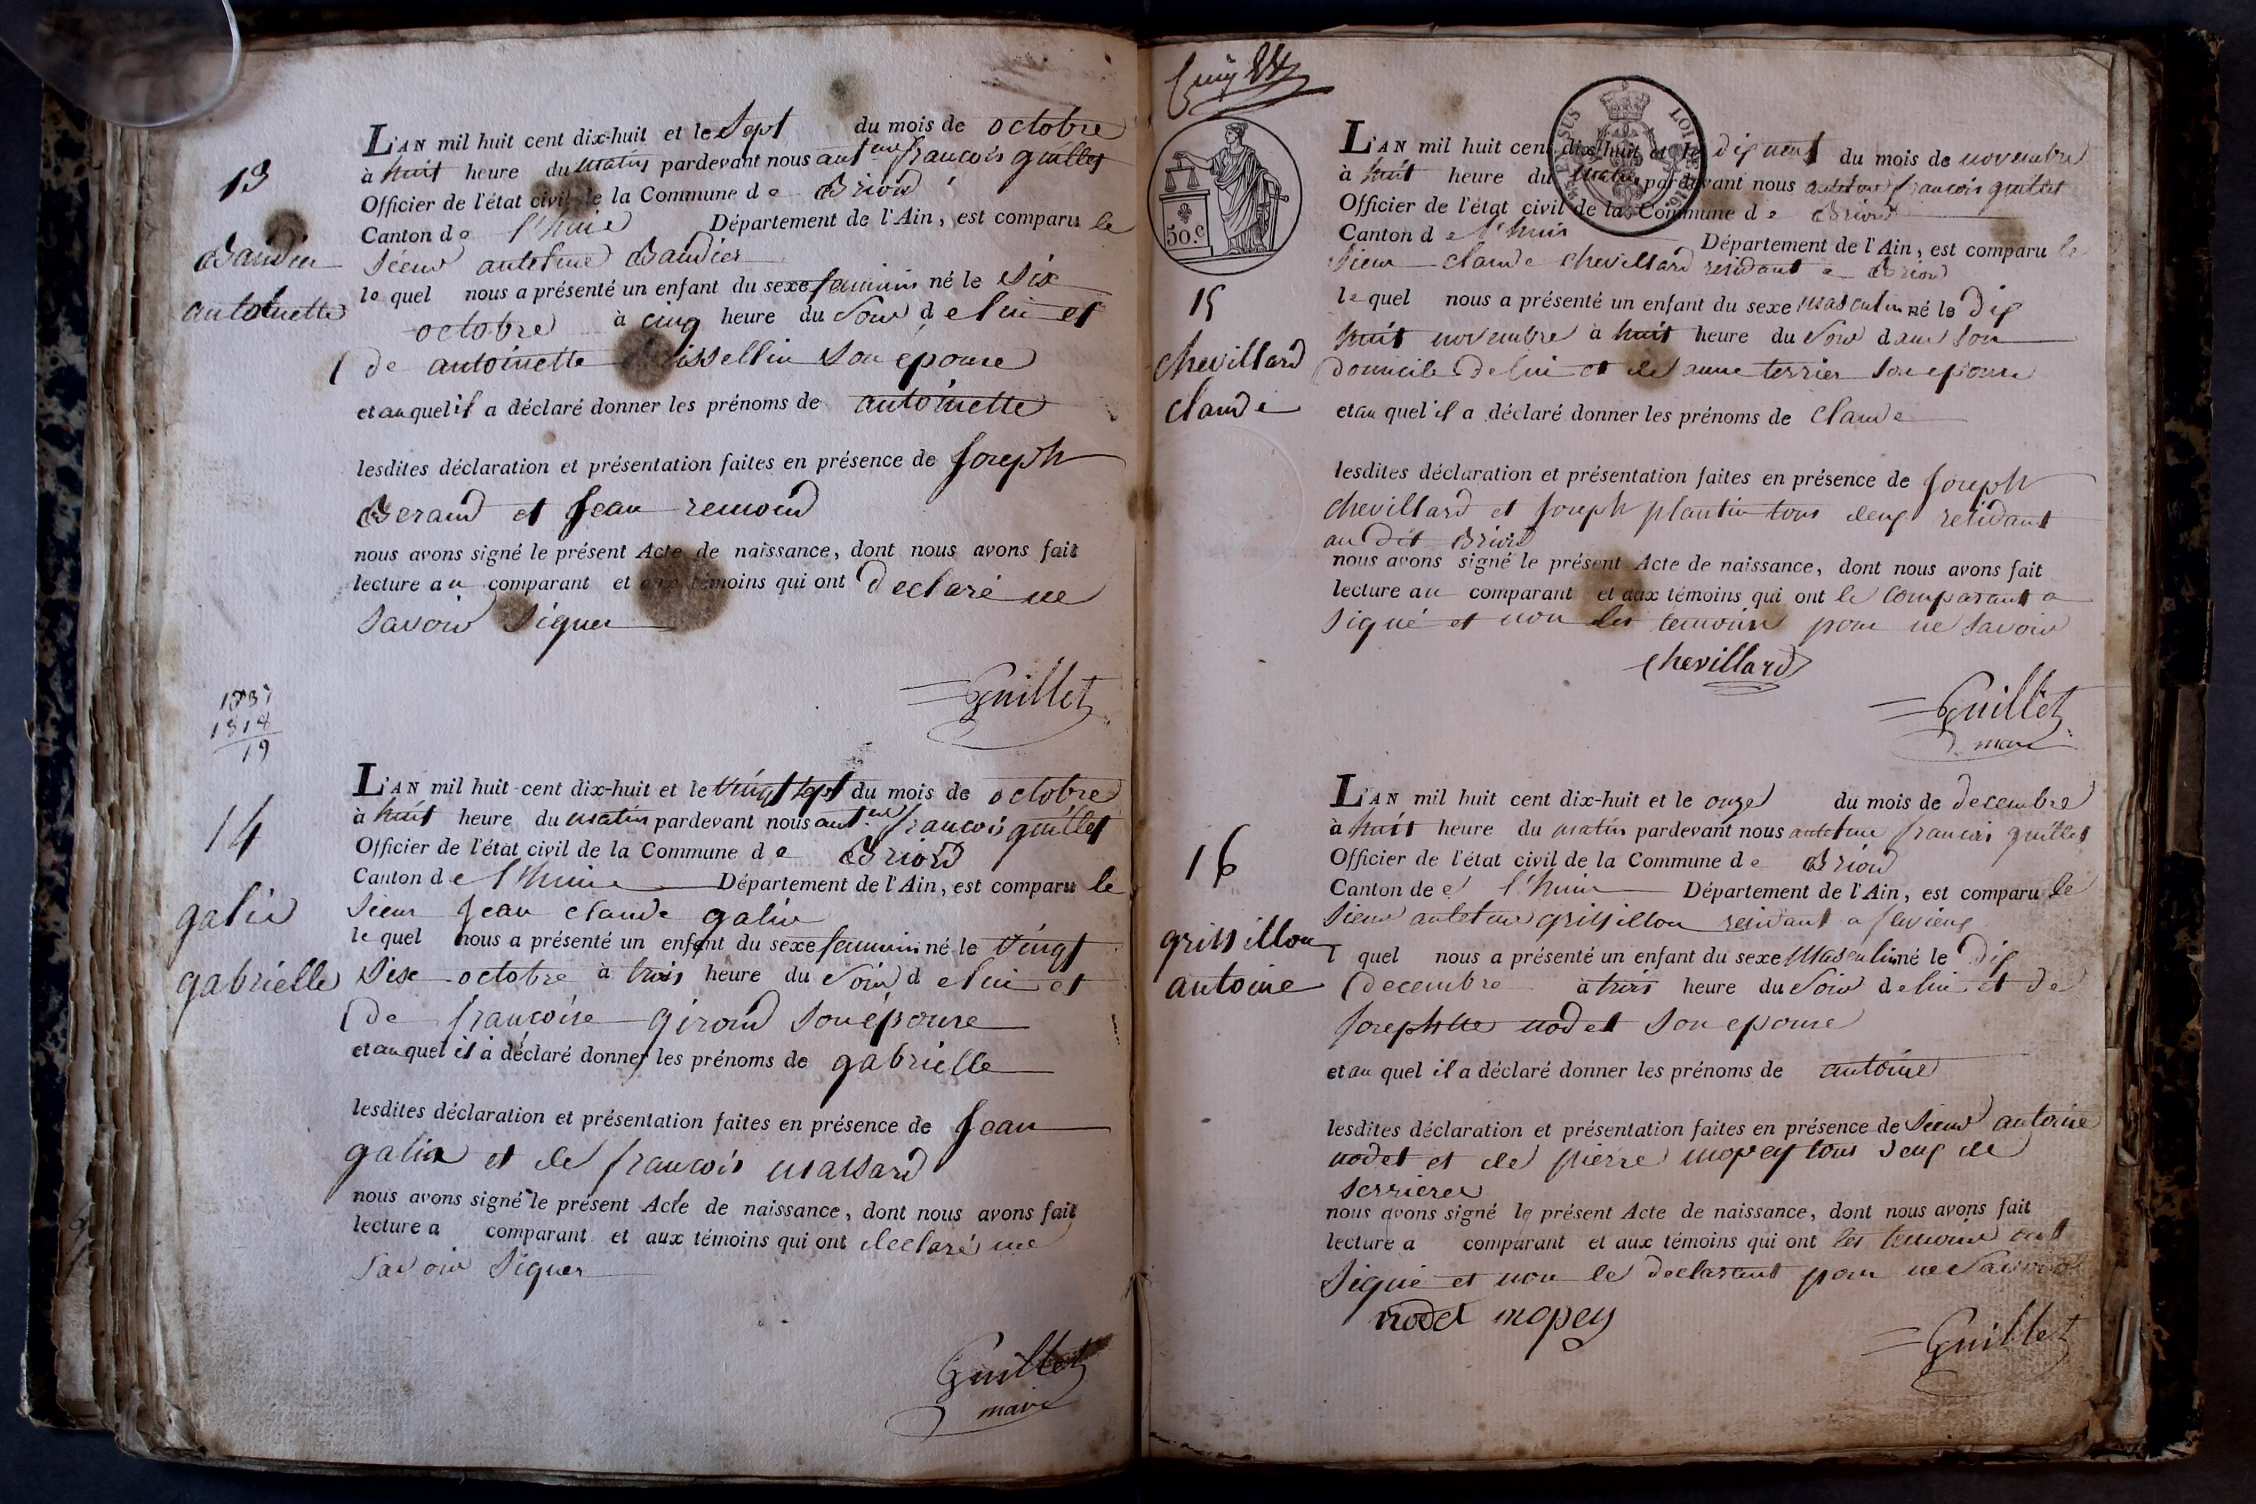 13
Baudin
antoinette
L'AN mil huit cent dix-huit et le Sept du mois de octobre
à huit heure du matin pardevant nous antne francois guillet
Officier de l'état civil de la Commune de Briord
Canton de l'huis Département de l'Ain, est comparu le
Sieur antoine Baudin
le quel nous a présenté un enfant du sexe feminin né le Six
octobre à cinq heure du Soir de lui et
de antoinette son epouse
et au quel il a déclaré donner les prénoms de antoinette
lesdites déclaration et présentation faites en présence de Joseph
Beraud et Jean remond
nous avons signé le présent Acte de naissance, dont nous avons fait
lecture au comparant et aux témoins qui ont declaré ne
Savoir Signer
Guillet
1837
1818
19
14
galin
gabrielle
L'AN mil huit cent dix-huit et le vingt sept du mois de octobre
à huit heure du matin pardevant nous antne francois guillet
Officier de l'état civil de la Commune de Briord
Canton de l'huis Département de l'Ain, est comparu le
Sieur Jean claude galin
le quel nous a présenté un enfant du sexe feminin né le vingt
Six octobre à trois heure du Soir de lui et
de françoise giroud Son épouse
et au quel il a déclaré donner les prénoms de gabrielle
lesdites déclaration et présentation faites en présence de Jean
galin et de francois massard
nous avons signé le présent Acte de naissance, dont nous avons fait
lecture a comparant et aux témoins qui ont declaré ne
Savoir Signer
Guillet
maire
50.c
LOI
15
chevillard
claude
L'AN mil huit cent dix-huit et le dix neuf du mois de novembre
à huit heure du matin pardevant nous antoine francois guillet
Officier de l'état civil de la Commune de Briord
Canton de l'huis Département de l'Ain, est comparu le
Sieur claude chevillard residant a Briord
le quel nous a présenté un enfant du sexe masculin né le Dix
huit novembre à huit heure du Soir dans son
domicile de lui et de anne terrier Son epouse
et au quel il a déclaré donner les prénoms de claude
lesdites déclaration et présentation faites en présence de Joseph
chevillard et Joseph plantin tous deux residant
au dit Briord
nous avons signé le présent Acte de naissance, dont nous avons fait
lecture au comparant et aux témoins qui ont le comparant a
Signé et non les temoins pour ne Savoir
chevillard
Guillet
maire
16
grissillon
antoine
L'AN mil huit cent dix-huit et le onze du mois de decembre
à huit heure du matin pardevant nous antoine francois guillet
Officier de l'état civil de la Commune de Briord
Canton de l'huis Département de l'Ain, est comparu le
Sieur antoine grissillon residant a
l quel nous a présenté un enfant du sexe Masculin né le Dix
decembre à trois heure du Soir de lui et de
Josephte nodet Son epouse
et au quel il a déclaré donner les prénoms de antoine
lesdites déclaration et présentation faites en présence de Sieur antoine
nodet et de pierre mopey tous deux de
serrieres
nous avons signé le présent Acte de naissance, dont nous avons fait
lecture a comparant et aux témoins qui ont les temoins ont
Signé et non le declarant pour ne Savoir
nodet mopey
Guillet